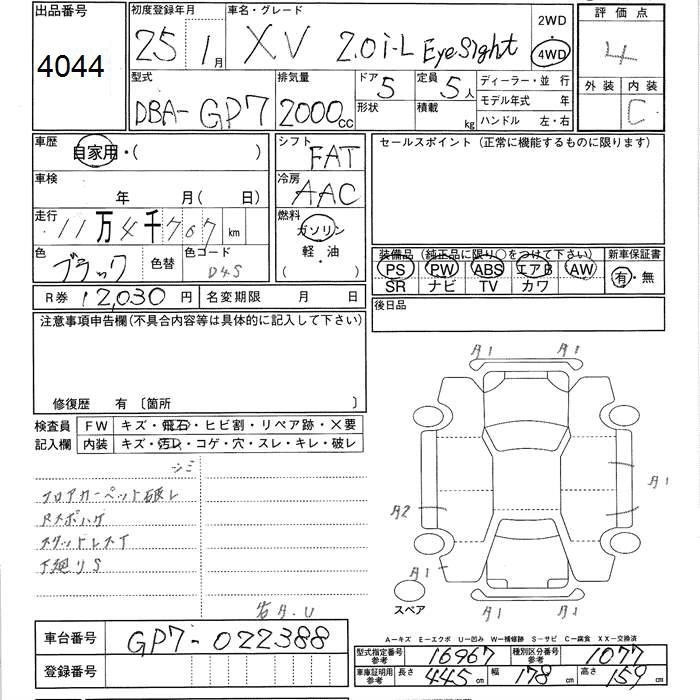 出品番号
4044
初度登録年月
25年 1月
車名・グレード
XV 2.0i-L EyeSight
2WD
・
4WD
評価点
4
外装 内装
C
型式
DBA-GP7
排気量
2000cc
ドア
5
形状
定員
5人
積載 kg
ディーラー・並行
モデル年式 年
ハンドル 左・右
車歴
自家用・( )
シフト
FAT
セールスポイント(正常に機能するものに限ります)
車検
年 月( 日)
冷房
AAC
走行
11万4千707km
燃料
ガソリン
軽・油
( )
色
ブラック
色替
色コード
D4S
装備品(純正品に限り○をつけて下さい)
PS PW ABS エアB AW
SR ナビ TV カワ
新車保証書
有・無
R券 12,030円
名変期限 月 日
後日品
注意事項申告欄(不具合内容等は具体的に記入して下さい)
修復歴 有 〔箇所 〕
検査員
記入欄
FW キズ・飛石・ヒビ割・リペア跡・X要
内装 キズ・汚レ・コゲ・穴・スレ・キレ・破レ
シミ
フロアカーペット破レ
下廻りS
A1 A1
A1
A2
A1
A1 A1
スペア
車台番号 GP7-022388
登録番号
A-キズ E-エクボ U-凹み W-補修跡 S-サビ C-腐食 XX-交換済
型式指定番号
参考
16967
種別区分番号
参考
1077
車庫証明用
参考
長さ 445cm 幅 178cm 高さ 159cm